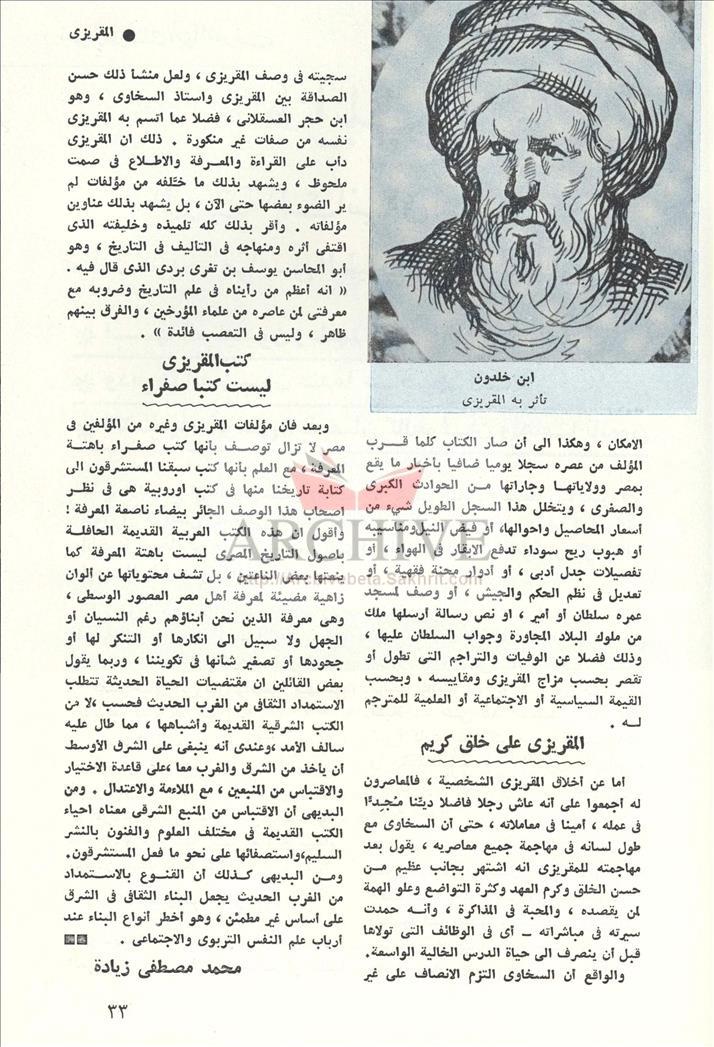 ● المقريزى
ابن خلدون
تأثر به المقريزى
الامكان ، وهكذا الى أن صار الكتاب كلما قرب
المؤلف من عصره سجلا يوميا ضافيا بأخبار ما يقع
بمصر وولاياتها وجاراتها من الحوادث الكبرى
والصغرى ، ويتخلل هذا السجل الطويل شيء من
أسعار المحاصيل واحوالها، أو فيض النيل ومناسيبه
أو هبوب ريح سوداء تدفع الابقار فى الهواء ، أو
تفصيلات جدل أدبى ، أو أدوار محنة فقهية ، أو
تعديل فى نظم الحكم والجيش ، أو وصف لمسجد
عمره سلطان أو أمير ، او نص رسالة أرسلها ملك
من ملوك البلاد المجاورة وجواب السلطان عليها ،
وذلك فضلا عن الوفيات والتراجم التى تطول أو
تقصر بحسب مزاج المقريزى ومقاييسه ، وبحسب
القيمة السياسية أو الاجتماعية أو العلمية للمترجم
له .
المقريزى على خلق كريم
أما عن أخلاق المقريزى الشخصية ، فالمعاصرون
له أجمعوا على أنه عاش رجلا فاضلا ديّنا مُجِدًّا
فى عمله ، أمينا فى معاملاته ، حتى أن السخاوى مع
طول لسانه فى مهاجمة جميع معاصريه ، يقول بعد
مهاجمته للمقريزى انه اشتهر بجانب عظيم من
حسن الخلق وكرم العهد وكثرة التواضع وعلو الهمة
لمن يقصده ، والمحبة فى المذاكرة ، وأنه حمدت
سيرته فى مباشراته ــ أى فى الوظائف التى تولاها
قبل أن ينصرف الى حياة الدرس الخالية الواسعة.
والواقع أن السخاوى التزم الانصاف على غير
سجيته فى وصف المقريزى ، ولعل منشأ ذلك حسن
الصداقة بين المقريزى واستاذ السخاوى ، وهو
ابن حجر العسقلانى ، فضلا عما اتسم به المقريزى
نفسه من صفات غير منكورة . ذلك ان المقريزى
دأب على القراءة والمعرفة والاطلاع فى صمت
ملحوظ ، ويشهد بذلك ما خلّفه من مؤلفات لم
ير الضوء بعضها حتى الآن ، بل يشهد بذلك عناوين
مؤلفاته . وأقر بذلك كله تلميذه وخليفته الذى
اقتفى أثره ومنهاجه فى التأليف فى التاريخ ، وهو
أبو المحاسن يوسف بن تغرى بردى الذى قال فيه .
« انه أعظم من رأيناه فى علم التاريخ وضروبه مع
معرفتى لمن عاصره من علماء المؤرخين ، والفرق بينهم
ظاهر ، وليس فى التعصب فائدة » .
كتب المقريزى
ليست كتبا صفراء
وبعد فان مؤلفات المقريزى وغيره من المؤلفين فى
مصر لا تزال توصف بأنها كتب صفراء باهتة
المعرفة ، مع العلم بأنها كتب سبقنا المستشرقون الى
كتابة تاريخنا منها فى كتب اوروبية هى فى نظر
اصحاب هذا الوصف الجائر بيضاء ناصعة المعرفة !
وأقول ان هذه الكتب العربية القديمة الحافلة
بأصول التاريخ المصرى ليست باهتة المعرفة كما
ينعتها بعض الناعتين ، بل تشف محتوياتها عن ألوان
زاهية مضيئة لمعرفة أهل مصر العصور الوسطى ،
وهى معرفة الذين نحن أبناؤهم رغم النسيان أو
الجهل ولا سبيل الى انكارها أو التنكر لها أو
جحودها أو تصغير شأنها فى تكويننا ، وربما يقول
بعض القائلين ان مقتضيات الحياة الحديثة تتطلب
الاستمداد الثقافى من الغرب الحديث فحسب ،لا من
الكتب الشرقية القديمة وأشباهها ، مما طال عليه
سالف الأمد ،وعندى أنه ينبغى على الشرق الأوسط
أن يأخذ من الشرق والغرب معا ،على قاعدة الاختيار
والاقتباس من المنبعين ، مع الملاءمة والاعتدال . ومن
البديهى أن الاقتباس من المنبع الشرقى معناه احياء
الكتب القديمة فى مختلف العلوم والفنون بالنشر
السليم،واستصفائها على نحو ما فعل المستشرقون.
ومن البديهى كذلك أن القنوع بالاستمداد
من الغرب الحديث يجعل البناء الثقافى فى الشرق
على أساس غير مطمئن ، وهو أخطر أنواع البناء عند
أرباب علم النفس التربوى والاجتماعى .
محمد مصطفى زيادة
٣٣
ARCHIVE
http://Archivebeta.Sakhrit.com